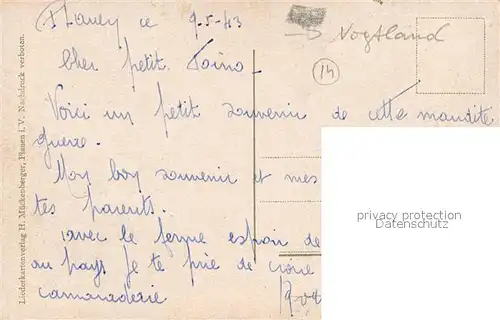 Plauen ce 9-5-43
→ Vogtland
14
Cher petit Toino-
Voici un petit souvenir de cette maudite
guerre.
Mon bon souvenir et mes
tes parents.
avec le ferme espoir de
au pays je te prie de croire
camaraderie
Liederkartenverlag H. Mückenberger, Plauen i. V. Nachdruck verboten.
privacy protection
Datenschutz